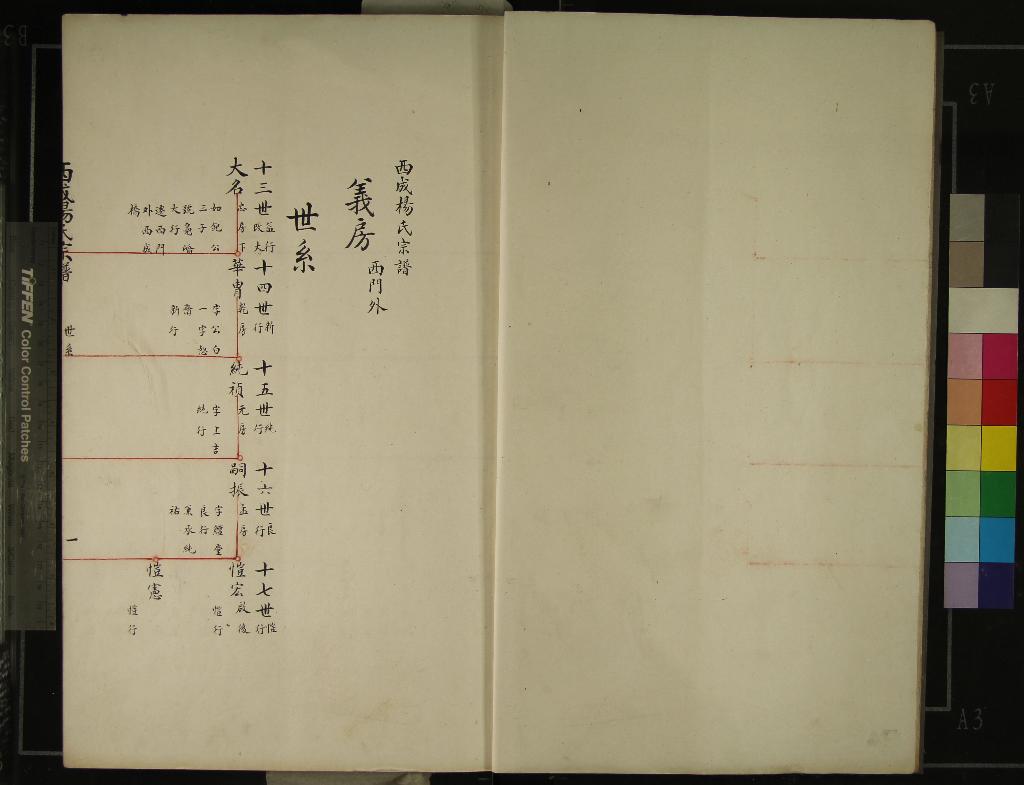 西成楊氏宗譜
義房
西門外
世系
十三世益行改大行
大名
忠房下
如紀公
三子
大行
遷西門
外西成
橋
十四世新行
華胄
乾房
字公白
一字怒
齋
新行
十五世純行
純禎
元房
字上吉
純行
十六世良行
嗣振
孟房
字鱣堂
良行
兼承純
祜
十七世愷行
愷宏
啟後
愷行
愷憲
愷行
西成楊氏宗譜
世系
一
TIFFEN Color Control Patches
A3
A3
B3